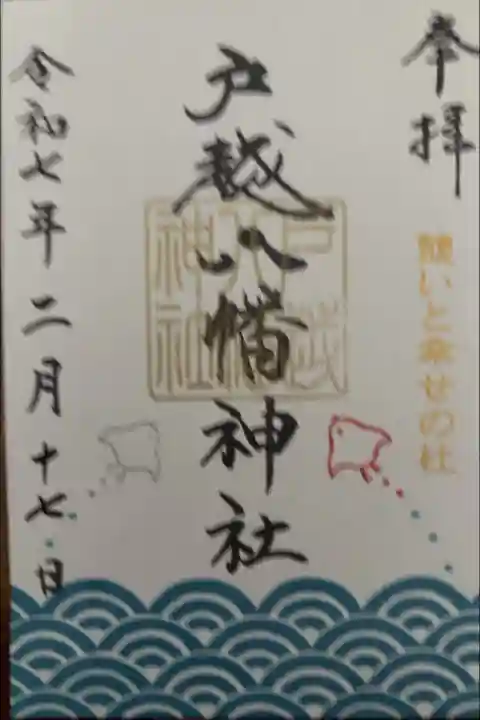 奉拝
憩いと幸せの杜
戸越八幡神社
戸越八幡神社
令和七年二月十七日